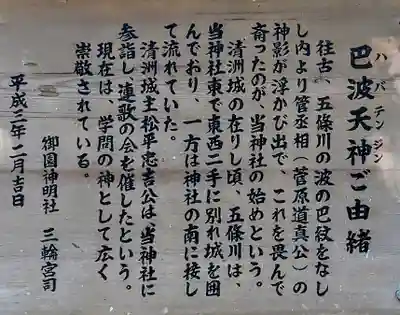 巴波天神ご由緒
ハバテンジン
往古、五條川の波の巴紋をなし
し内より管丞相（菅原道真公）の
神影が浮かび出で、これを畏んで
斎ったのが、当神社の始めという。
清洲城の在りし頃、五條川は、
当神社東で東西二手に別れ城を囲
んでおり、一方は神社の南に接し
て流れていた。
清洲城主松平忠吉公は当神社に
参詣し連歌の会を催したという。
現在は、学問の神として広く
崇敬されている。
平成三年二月吉日
御園神明社 三輪宮司